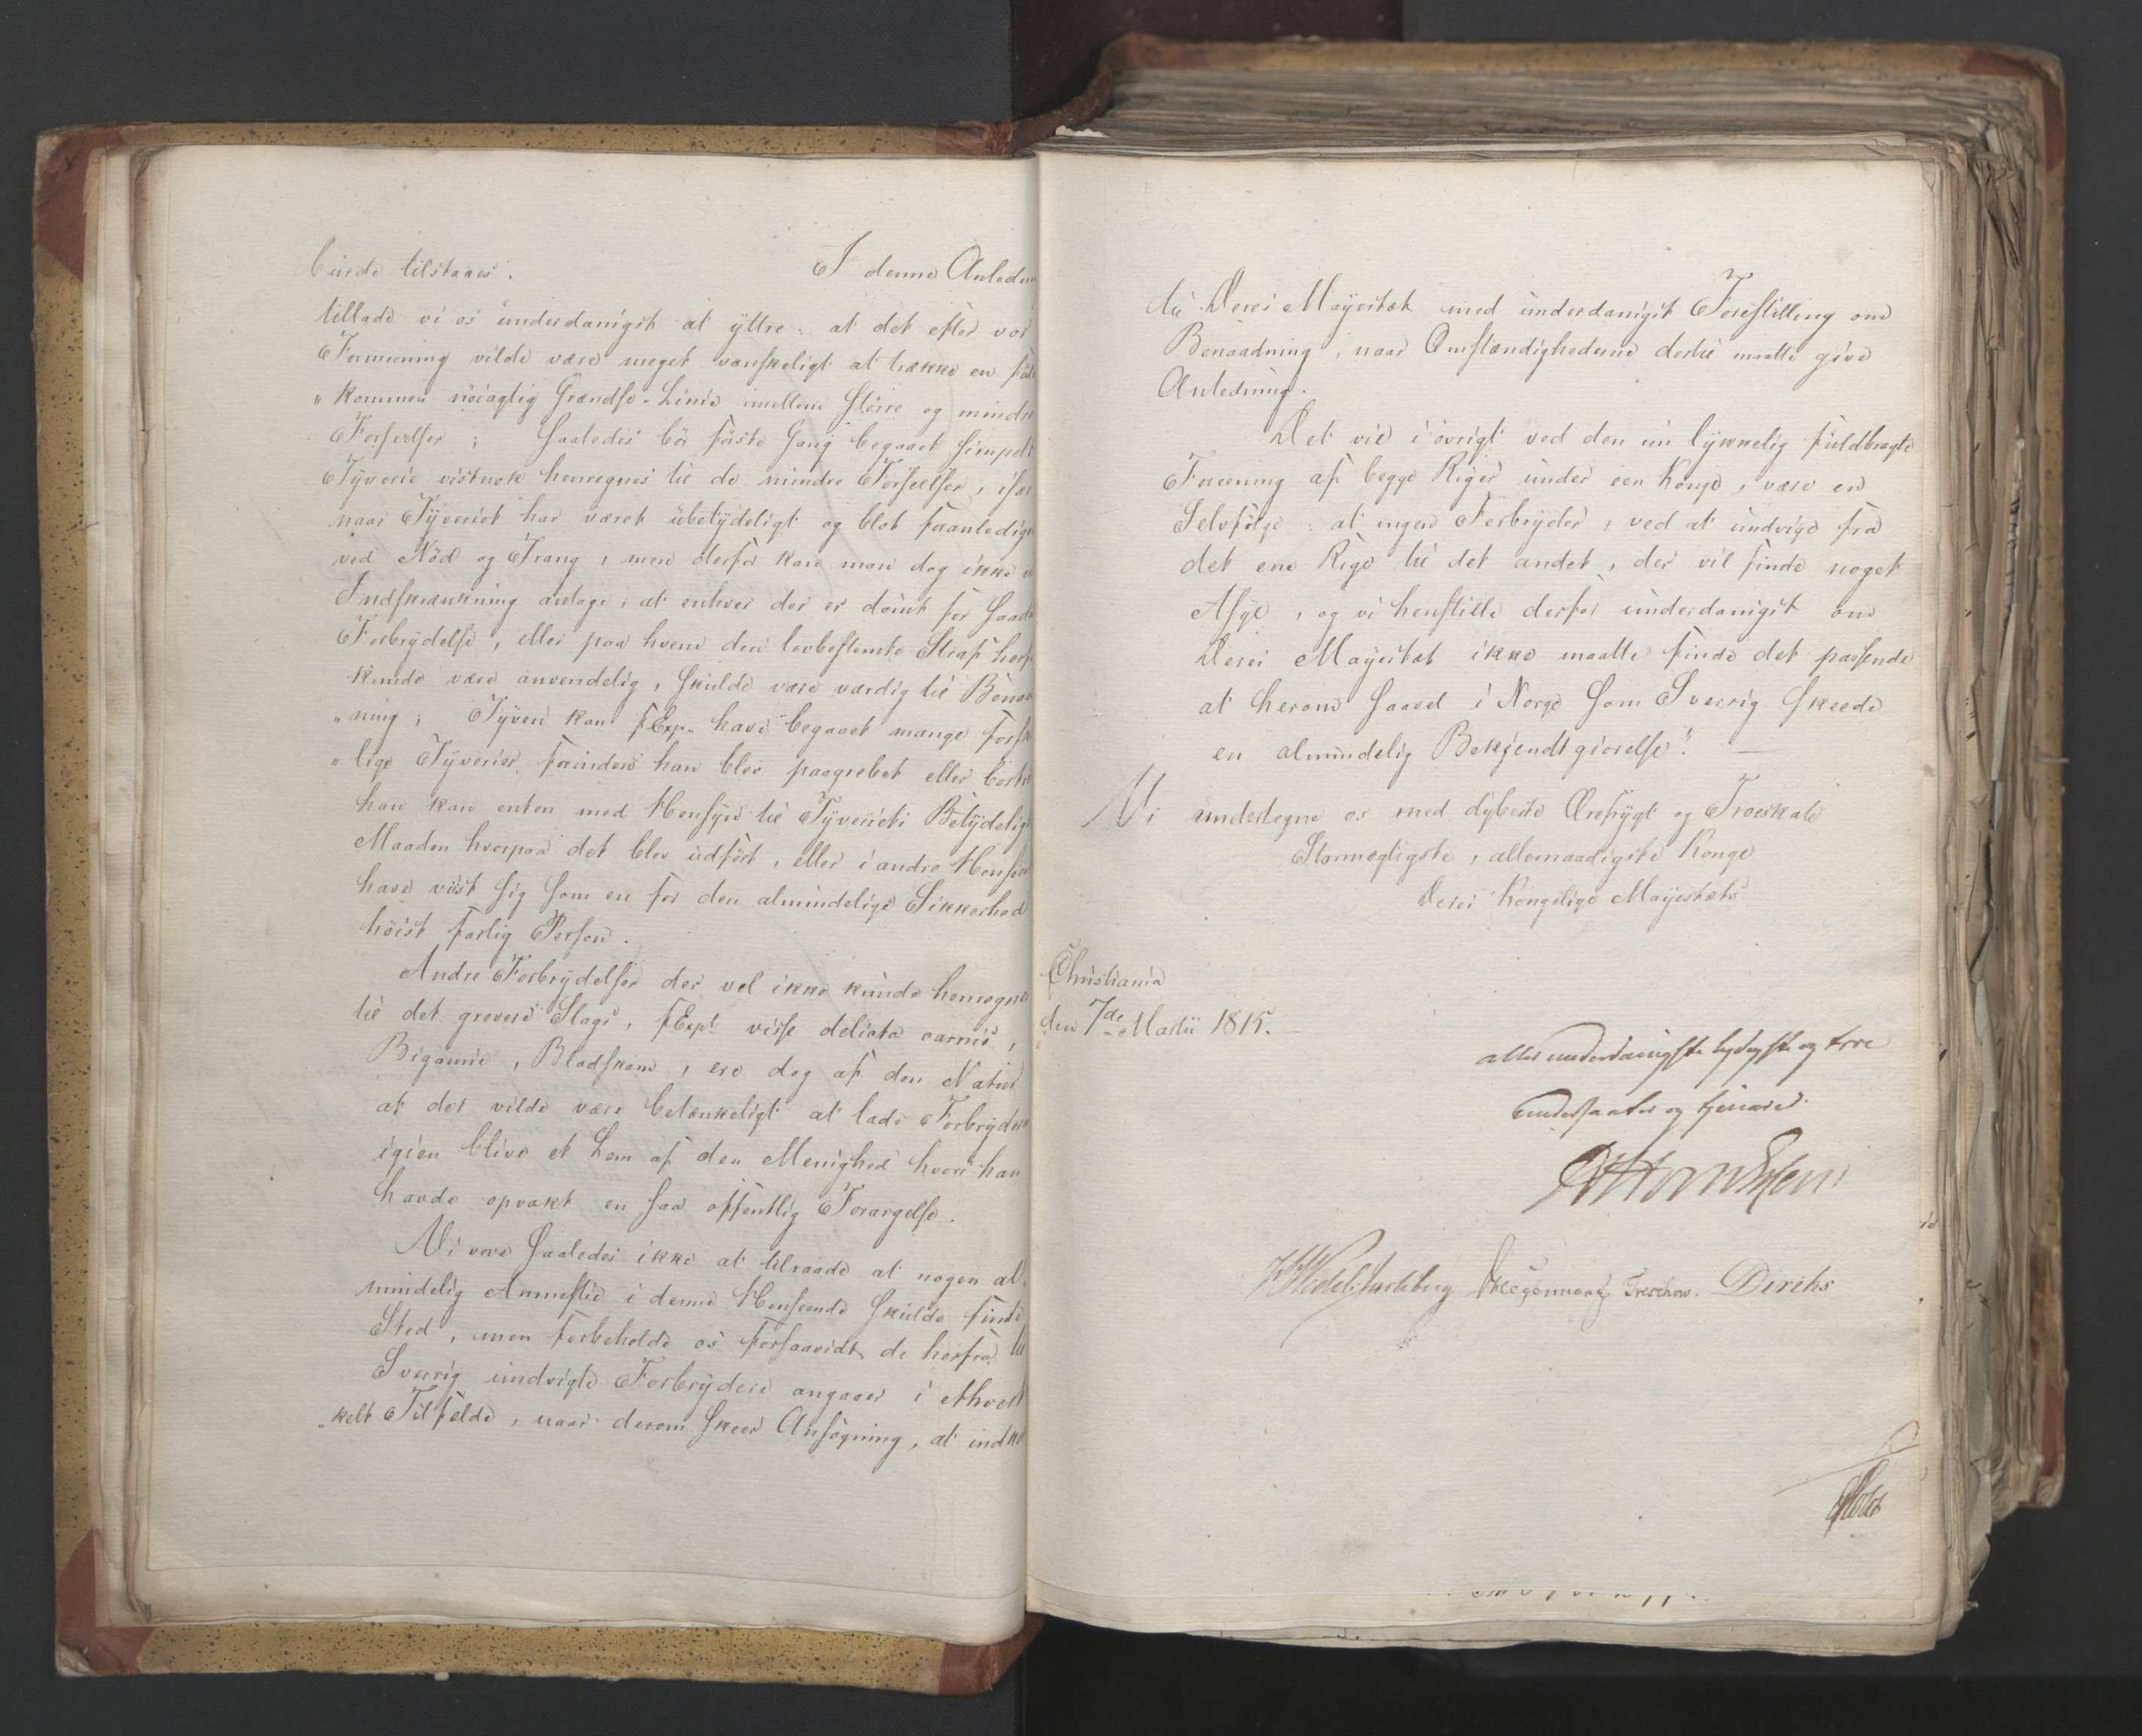 burde tilstaaes. I denne Anledn
tillade vi os underdanigst at yttre: at det efter vor
Formeening vilde være meget vanskeligt at trække en ful
„kommen nöiagtig Grændse-Linie imellem större og mindre
Forseelser; saaledes bör förste Gang begaaet simpelt
Tyverie vistnok henregnes til de mindre Forseelser, især
naar Tyveriet har været übetydeligt og blot foranlediget
ved Nöd og Trang, men derfor kan man dog ikke
Indskrænkning antage, at enhver der er dömt for saad
Forbrydelse, eller paa hvem den lovbestemte Straf herfo
kunde være anvendelig, skulde være værdig til Benaad
„ning; Tyven kan f Exp. have begaaet mange forskel
„lige Tyverier förinden han blev paagrebet eller
han kan enten med Hensyn til Tyveriets Betydelig
Maaden hvorpaa det blev udfört, eller i andre Henseen
have viist sig som en for den almindelige Sikkerhed
höist farlig Person.
Andre Forbrydelser der vel ikke kunde henregnes
til det grovere Slags, f Expl visse delicta carnis,
Bigamie, Blodskam, ere dog af den Natur
at det vilde være betænkeligt at lade Forbryderen
igien blive et Lem af den Menighed hvori han
havde opvakt en saa offentlig Forargelse.
Vi vove saaledes ikke at tilraade at nogen al„
mindelig Amnestie i denne Henseende skulde finde
Sted, men forbeholde os forsaavidt de herfra til
Sverrig undvigte Forbrydere angaaer i ethvert
„kelt Tilfælde, naar derom skeer Ansögning, at indko
til Deres Mayestæt med underdanigst Forestilling om
Benaadning, naar Omstændighederne dertil maatte give
Anledning.
Det vil i övrigt ved den nu lykkelig fuldbragte
Foreening af begge Riger under een Konge, være en
Selvfölge: at ingen Forbryder, ved at undvige fra
det ene Rige til det andet, der vil finde noget
Asyl, og vi henstille derfor underdanigst om
Deres Mayestæt ikke maatte finde det passende
at herom saavel i Norge som Sverrig skeede
en almindelig Bekjendtgiörelse". —
Vi undertegne os med dybeste Ærefrygt og Troeskab
Stormægtigste, allernaadigste Konge
Deres Kongelige Mayestæts
Christiania
den 7de Martii 1815.
allerunderdanigste lydigste og troe
undersaatter og tjenere.
Wedel Jarlsberg Hegermann Treschow. Diriks
Holst